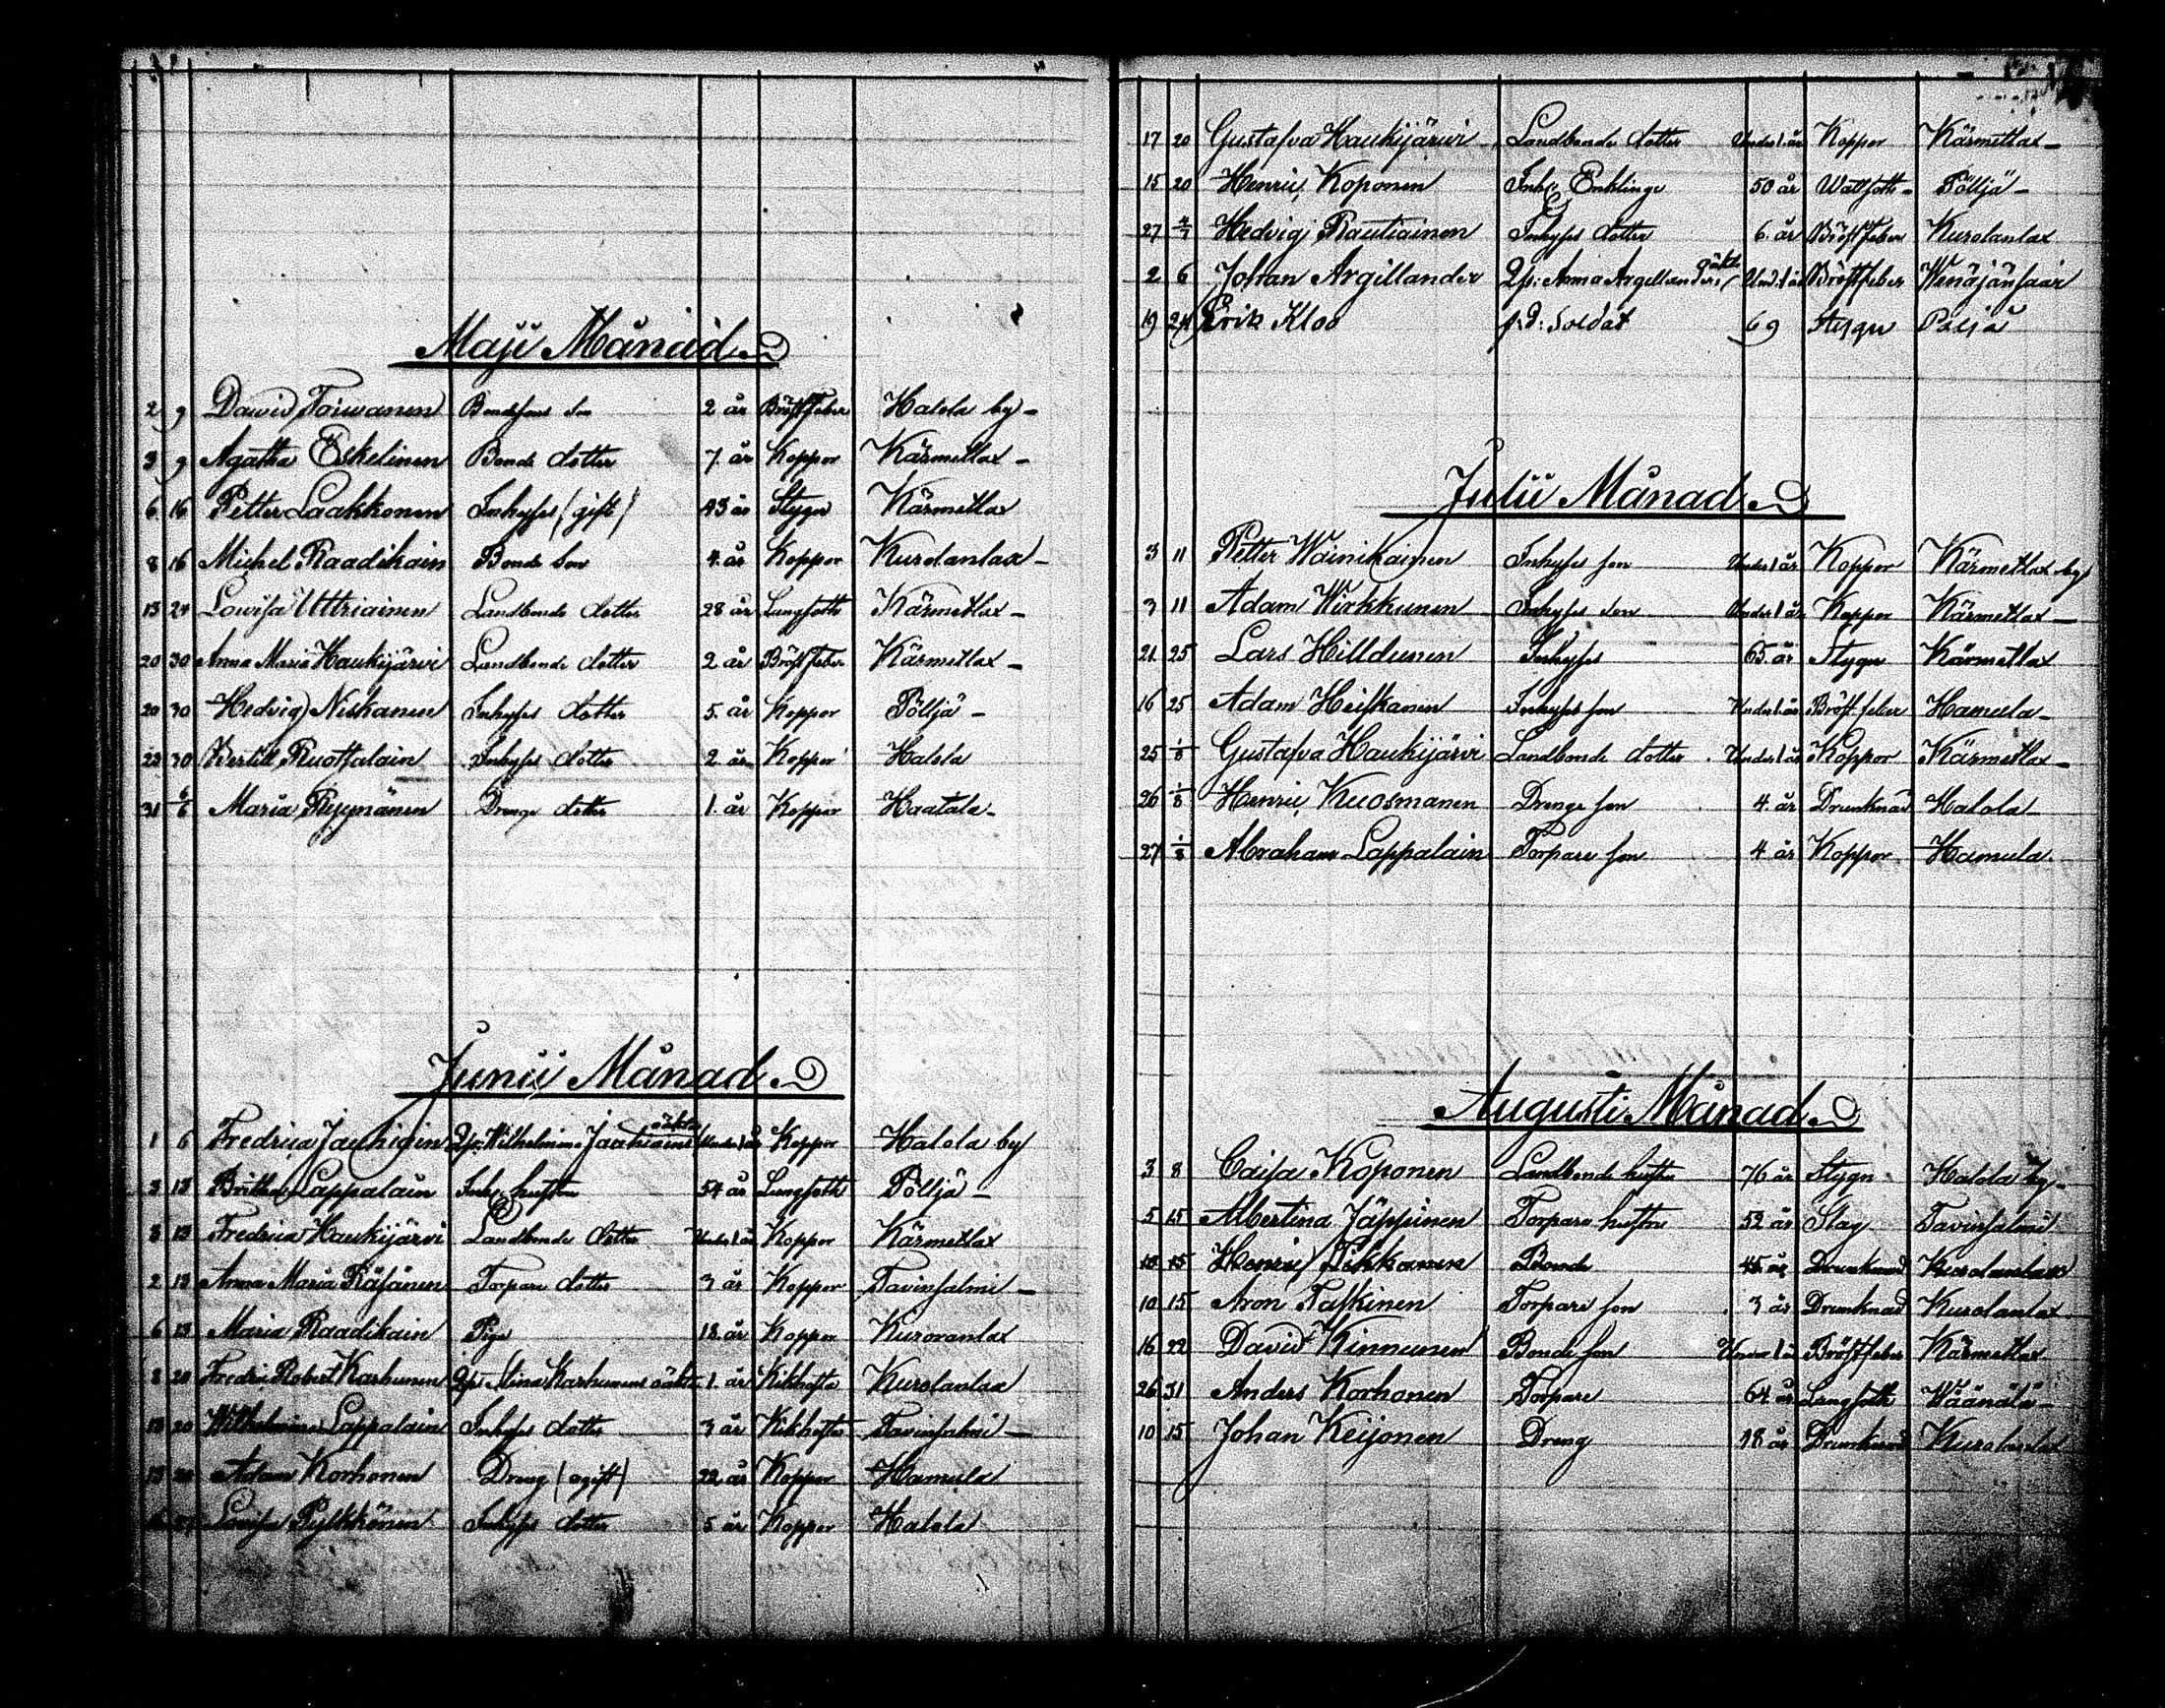 Maji Månad
2 9 Dawid Toiwanen Bondesons son 2 år Bröstfeber Halola by-
3 9 Agatha Eskelinen Bonde dotter 7. år Koppor Kärmetlax -
6 16 Petter Laakkonen Inhyses (gift) 43 år Stygn Kärmetlax
8 16 Michel Raadikain Bonde Son 4. år Koppor Kurolanlax -
13 24 Lowisa Uttriainen Landbonde dotter 28 år Lungsoth Kärmetlax -
20 30 Anna Maria Haukijärvi Landbonde dotter 2 år Bröstfeber Kärmetlax -
20 30 Hedvig Niskanen Inhyses dotter 5. år Koppor Pöljä -
22 30 Ruotsalain Inhyses dotter 2. år Koppor Halola
31 6/6 Maria Ryynänen Drenge dotter 1. år Koppor Haatala -
Junii Månad
1 6 Fredrica Jauhiain Qp: Wilhelmina oäkta Under 1 år Koppor Halola by
3 13 Britha Lappalain Inhs hustru 54 år Lungsoth Pöljä -
8 13 Fredrica Haukijärvi Landbonde dotter Under 1 år Koppor Kärmetlax
2 13 Anna Maria Räsänen Torpare dotter 3 år Koppor Tavinsalmi -
6 13 Maria Raadikain Piga 18. år Koppor Kurolanlax
8 20 Fredric Robert Karhunen Qps Stina Karhunens oäkta 1. år Kikhosta Kurolanlax
13 20 Wilhelmina Lappalain Inhyses dotter 3 år Kikhosta Tavinsalmi -
13 20 Adam Korhonen Dreng (ogift) 22 år Koppor Hamula
Lowisa Pylkkönen Inhyses dotter 5 år Koppor Halola
17 20 Gustafva Haukijärwi Landbonde dotter Under 1. år Koppor Kärmetlax -
15 20 Henric Koponen Inhs Enklinge 50 år Wattsoth - Pöljä -
27 4/7 Hedvig Rautiainen Inhyses dotter 6. år Bröstfeber Kurolanlax
2 6 Johan Argillander Qp: Anna Argillanders oäkta Und. 1 år Bröstfeber Wenäjänsaari
19 24 Erik Kloo f.d. Soldat 69 Stygn Pöljä
Julii Månad
3 11 Petter Wainikainen Inhyses son Under 1 år Koppor Kärmetlax by
3 11 Adam Wirkkunen Inhyses son Under 1 år Koppor Kärmetlax -
21 25 Lars Hilldunen Inhyses 65. år Stygn Kärmetlax
16 25 Adam Heiskanen Inhyses son Under 1 år Bröstfeber Hamula -
25 1/8 Gustafva Haukijärvi Landbonde dotter Under 1 år Koppor Kärmetlax -
26 1/8 Henric Kuosmanen Drenge son 4. år Drunknad Halola -
27 1/8 Abraham Lappalain Torpare son 4 år Koppor Hamula
Augusti Månad
3 8 Caisa Koponen Landbonde hustru 76 år Stygn Halola by -
5 15 Albertina Jäppinen Torpare hustru 52 år Slag Tavinsalmi
10 15 Henric Bonde 45 år Drunknad Kurolanlax
10 15 Aron Taskinen Torpare son 3 år Drunknad Kurolanlax
16 22 David Kinnunen Bonde son Under 1 år Bröstfeber Kärmetlax
26 31 Anders Korhonen Torpare 64 år Lungsoth Wäänälä -
10 15 Johan Keijonen Dreng 18 år Drunknad Kurolanlax